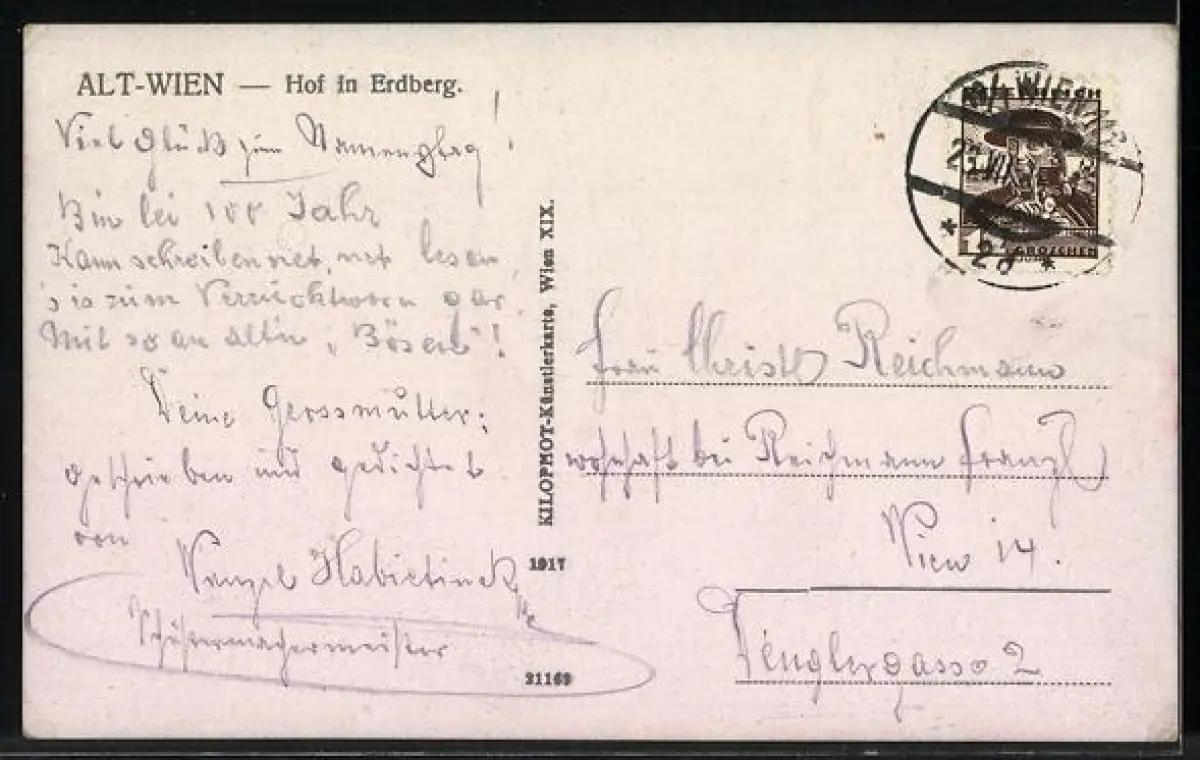 ALT-WIEN — Hof in Erdberg.
Viel Glück zum Namenstag!
Bin bei 100 Jahr
Kann schreiben net, net lesen,
's is zum Verrücktwern gar
Mit so an alten „Bösen“!
Deine Grossmutter:
geschrieben und gedichtet
von
Wenzel Habietinek
Schustermachermeister
KILOPHOT-Künstlerkarte, Wien XIX.
1917
21169
WIEN
23. VII
* 28 *
GROSCHEN
Frau Reichmann
wohnhaft bei Reichmann Franz
Wien 14.
2